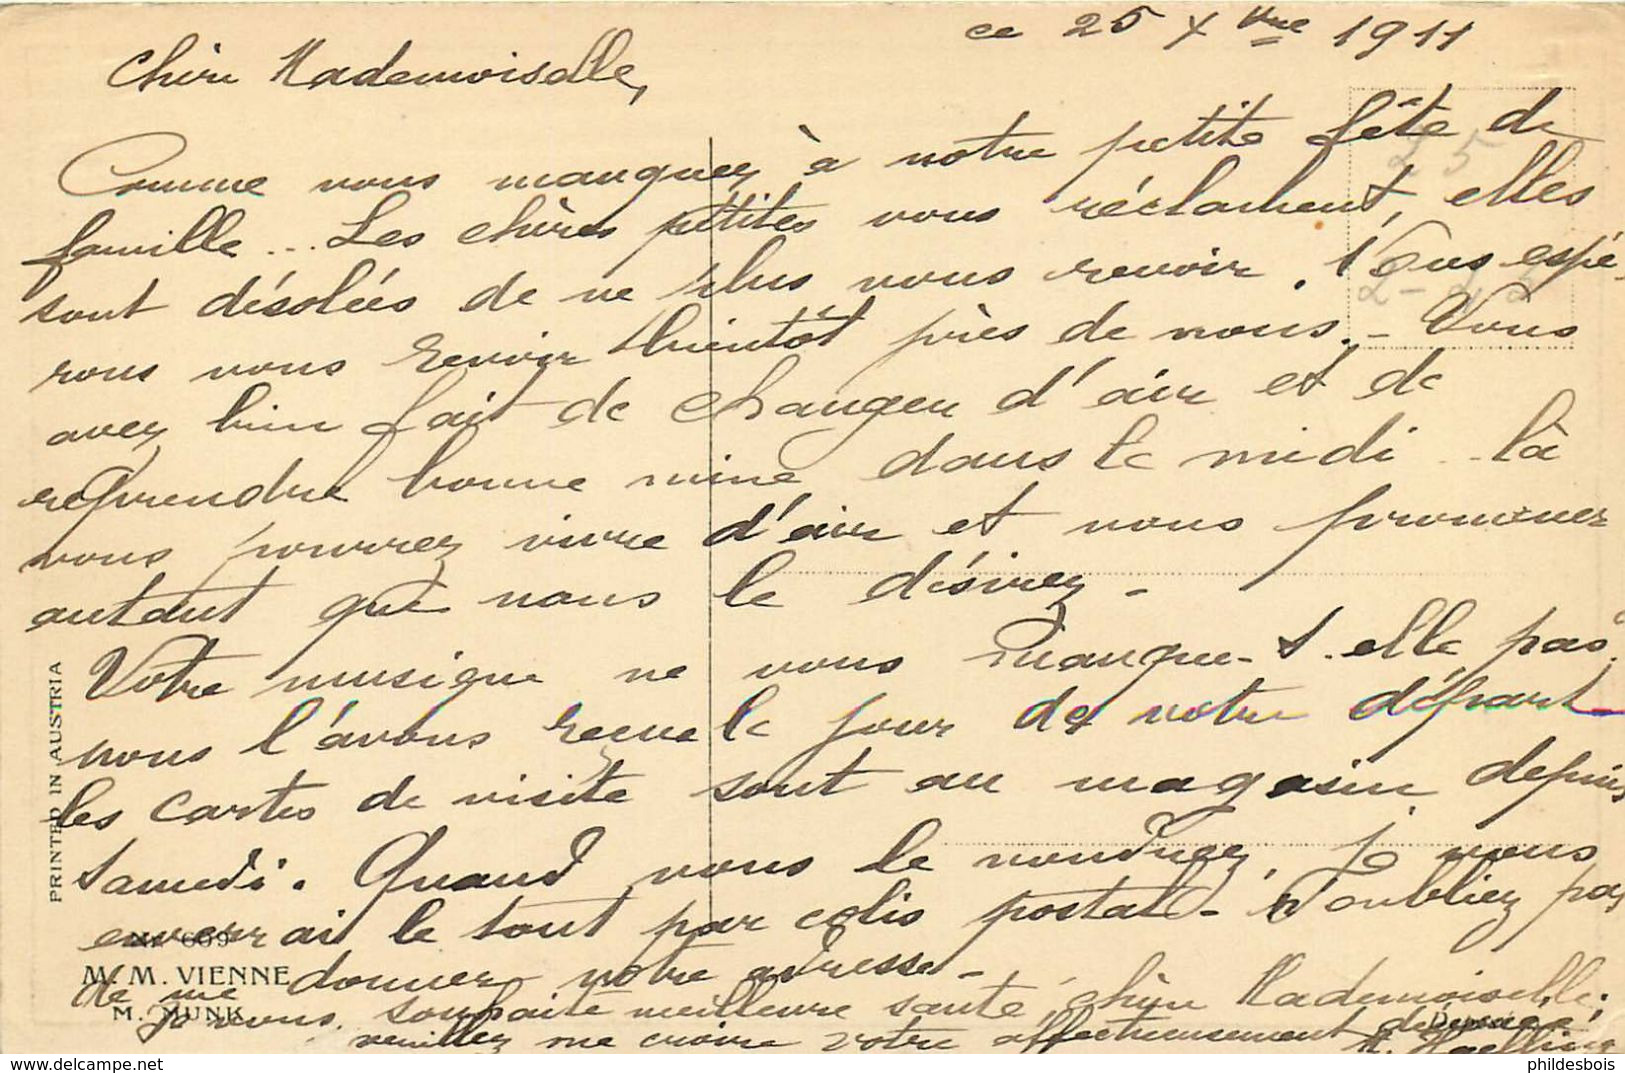 ce 25 Xbre 1911
Chère Mademoiselle,
Comme vous manquez à notre petite fête de
famille... Les chères petites vous réclament, elles
sont désolées de ne plus vous revoir. Nous espé-
rons vous revoir bientôt près de nous. - Vous
avez bien fait de changer d'air et de
reprendre bonne mine dans le midi - là
vous pourrez vivre d'air et vous promener
autant que vous le désirez -
Votre musique ne vous manque-t-elle pas,
nous l'avons reçue le jour de votre départ
les cartes de visite sont au magasin depuis
Samedi. Quand vous le voudrez, je vous
enverrai le tout par colis postal - n'oubliez pas
de me donner votre adresse -
Je vous souhaite meilleure santé, chère Mademoiselle,
veuillez me croire votre affectueusement dévouée,
2 5
2 - 25
PRINTED IN AUSTRIA
Nr 669
M. M. VIENNE
M. MUNK
phildesbois